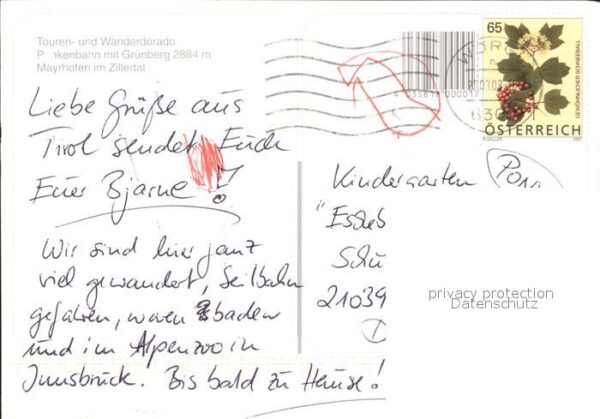 Touren- und Wanderdorado
Penkenbahn mit Grünberg 2884 m
Mayrhofen im Zillertal
Liebe Grüße aus
Tirol sendet Euch
Euer Bjarne!
Wir sind hier ganz
viel gewandert, Seilbahn
gefahren, waren baden
und im Alpenzoo in
Innsbruck. Bis bald zu Hause!
65
GEWÖHNLICHER SCHNEEBALL
ÖSTERREICH
Kindergarten
"Esche
Schu
21039
D
privacy protection
Datenschutz